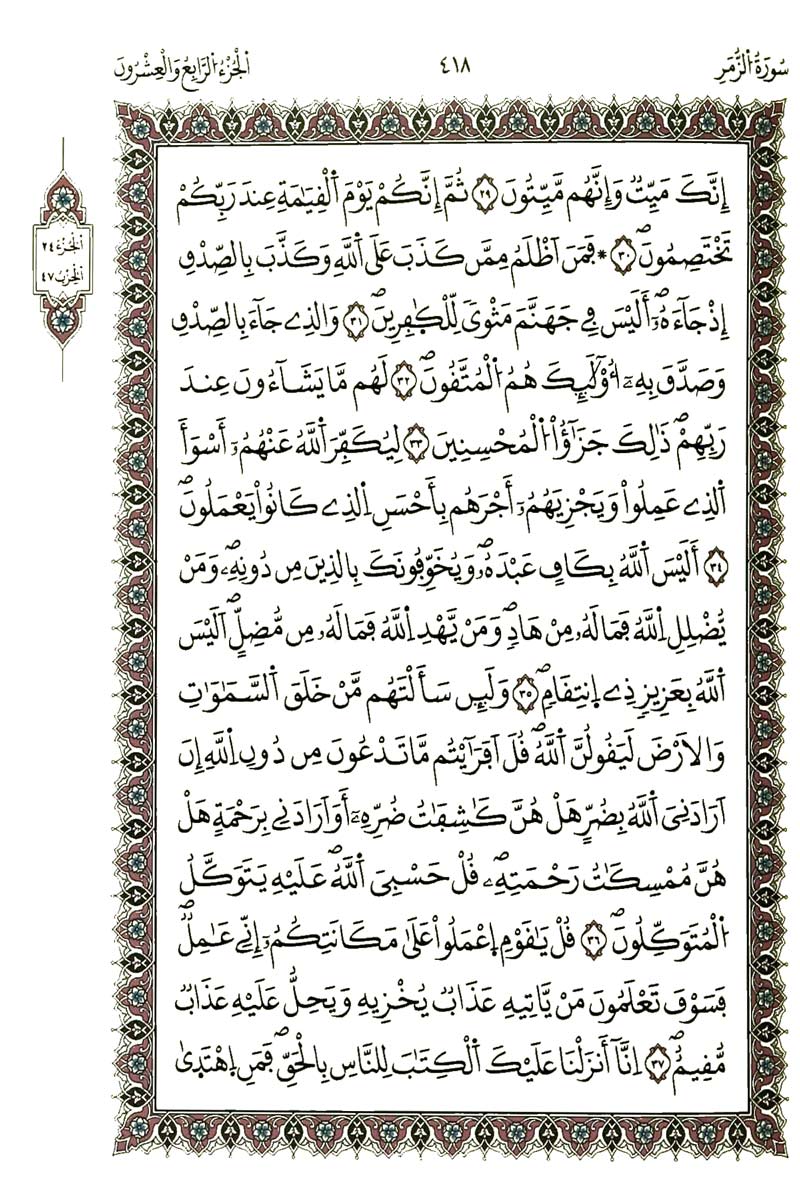 سُورَةُ الزُّمَرِ
٤١٨
الْجُزْءُ الرَّابِعُ وَالْعِشْرُونَ
إِنَّكَ مَيِّتٞ وَإِنَّهُم مَّيِّتُونَۖ ۝٢٩ ثُمَّ إِنَّكُمْ يَوْمَ اَ۬لْقِيَٰمَةِ عِندَ رَبِّكُمْ
تَخْتَصِمُونَۖ ۝٣٠ *فَمَنَ اَظْلَمُ مِمَّن كَذَبَ عَلَى اَ۬للَّهِ وَكَذَّبَ بِالصِّدْقِ
إِذْ جَآءَهُۥٓۖ أَلَيْسَ فِے جَهَنَّمَ مَثْويٗ لِّلْكٰ۪فِرِينَۖ ۝٣١ وَالذِے جَآءَ بِالصِّدْقِ
وَصَدَّقَ بِهِۦٓ أُوْلَٰٓئِكَ هُمُ اُ۬لْمُتَّقُونَۖ ۝٣٢ لَهُم مَّا يَشَآءُونَ عِندَ
رَبِّهِمْۖ ذَٰلِكَ جَزَٰٓؤُاْ اُ۬لْمُحْسِنِينَ ۝٣٣ لِيُكَفِّرَ اَ۬للَّهُ عَنْهُمُۥٓ أَسْوَأَ
اَ۬لذِے عَمِلُواْ وَيَجْزِيَهُمُۥٓ أَجْرَهُم بِأَحْسَنِ اِ۬لذِے كَانُواْ يَعْمَلُونَۖ
۝٣٤ أَلَيْسَ اَ۬للَّهُ بِكَافٍ عَبْدَهُۥۖ وَيُخَوِّفُونَكَ بِالذِينَ مِن دُونِهِۦۖ وَمَنْ
يُّضْلِلِ اِ۬للَّهُ فَمَا لَهُۥ مِنْ هَادٖۖ وَمَنْ يَّهْدِ اِ۬للَّهُ فَمَا لَهُۥ مِن مُّضِلٍّۖ اَلَيْسَ
اَ۬للَّهُ بِعَزِيزٖ ذِے اِ۪نتِقَامٖۖ ۝٣٥ وَلَئِن سَأَلْتَهُم مَّنْ خَلَقَ اَ۬لسَّمَٰوَٰتِ
وَالَارْضَ لَيَقُولُنَّ اَ۬للَّهُۖ قُلَ اَفَرَٰٓيْتُم مَّا تَدْعُونَ مِن دُونِ اِ۬للَّهِ إِنَ
اَرَادَنِيَ اَ۬للَّهُ بِضُرٍّ هَلْ هُنَّ كَٰشِفَٰتُ ضُرِّهِۦٓ أَوَ اَرَادَنِے بِرَحْمَةٍ هَلْ
هُنَّ مُمْسِكَٰتُ رَحْمَتِهِۦۖ قُلْ حَسْبِيَ اَ۬للَّهُۖ عَلَيْهِ يَتَوَكَّلُ
اُ۬لْمُتَوَكِّلُونَۖ ۝٣٦ قُلْ يَٰقَوْمِ اِ۪عْمَلُواْ عَلَىٰ مَكَانَتِكُمُۥٓ إِنِّے عَٰمِلٞۖ
فَسَوْفَ تَعْلَمُونَ مَنْ يَّاتِيهِ عَذَابٞ يُخْزِيهِ وَيَحِلُّ عَلَيْهِ عَذَابٞ
مُّقِيمٌۖ ۝٣٧ اِنَّآ أَنزَلْنَا عَلَيْكَ اَ۬لْكِتَٰبَ لِلنَّاسِ بِالْحَقِّۖ فَمَنِ اِ۪هْتَد۪ىٰ
اَلْجُزْءُ ٢٤
اَلْحِزْبُ ٤٧